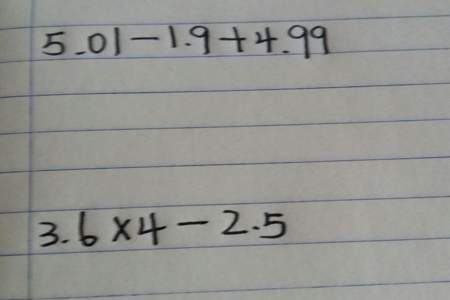 5.01-1.9+4.99
3.6×4-2.5